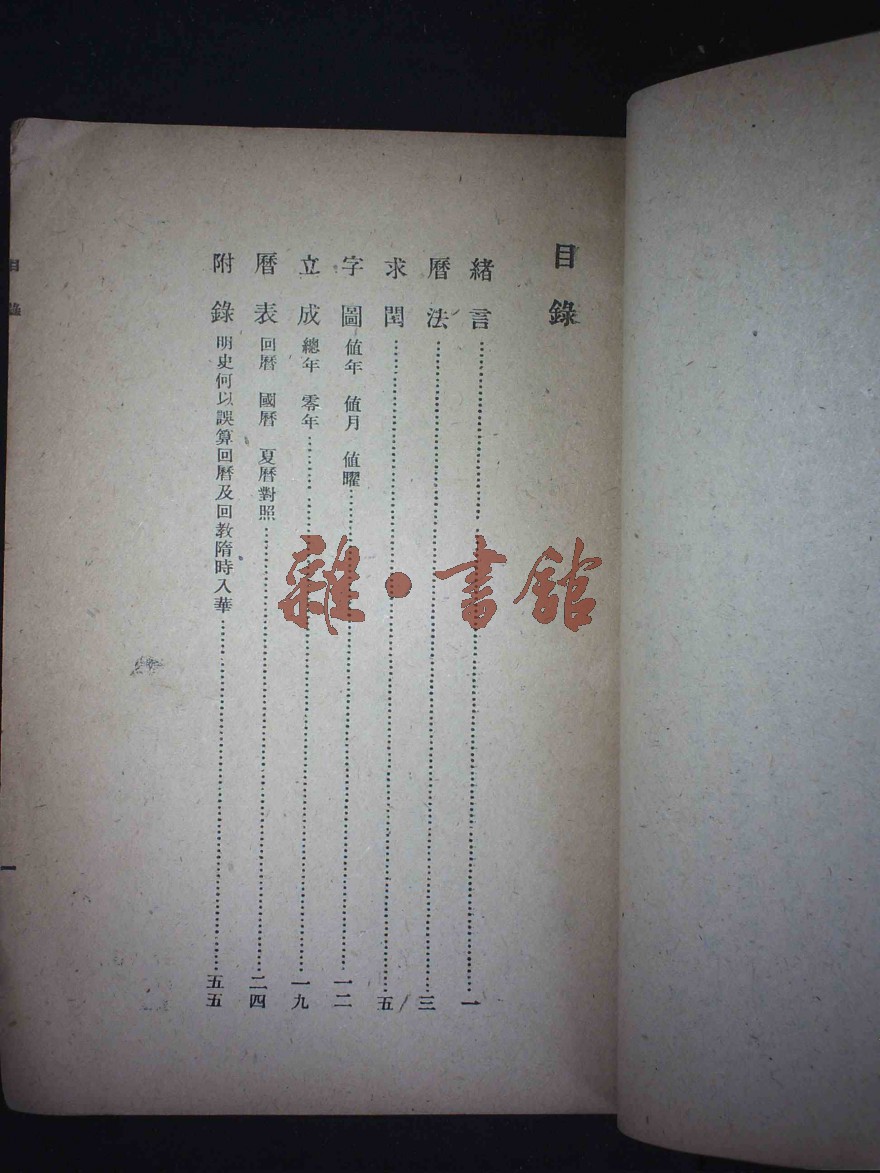 目錄
緒言……一
曆法……三
求閏……五
字圖 值年 值月 值曜……一二
立成 總年 零年……一九
曆表 回曆 國曆 夏曆對照……二四
附錄 明史何以誤算回曆及回教隋時入華……五五
目錄
一
雜·書館